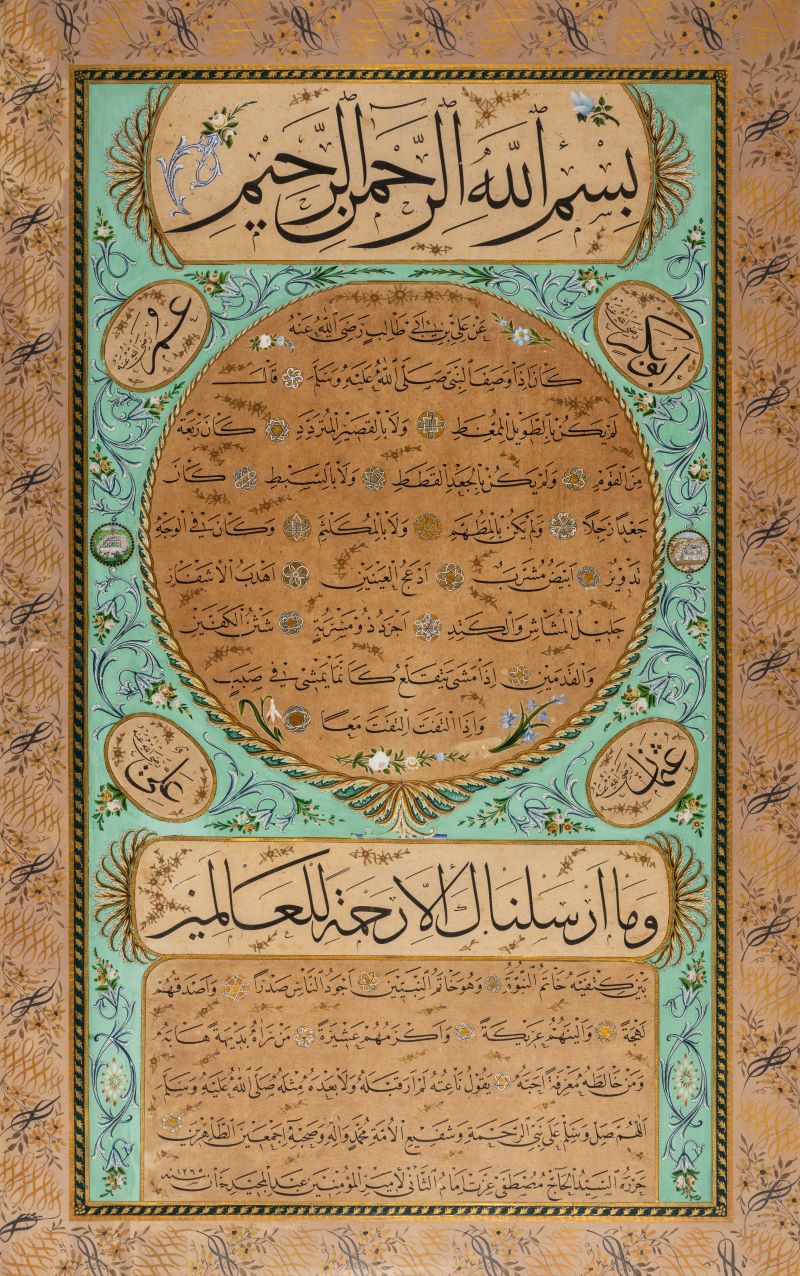 بِسْمِ اللّٰهِ الرَّحْمٰنِ الرَّحِيمِ
ابو بكر رضي الله عنه
عمر رضي الله عنه
عَنْ عَلِيِّ بْنِ اَبِي طَالِبٍ رَضِيَ اللّٰهُ عَنْهُ
كَانَ اِذَا وَصَفَ النَّبِيَّ صَلَّى اللّٰهُ عَلَيْهِ وَسَلَّمَ قَالَ
لَمْ يَكُنْ بِالطَّوِيلِ الْمُمَّغِطِ وَلَا بِالْقَصِيرِ الْمُتَرَدِّدِ كَانَ رَبْعَةً
مِنَ الْقَوْمِ وَلَمْ يَكُنْ بِالْجَعْدِ الْقَطَطِ وَلَا بِالسَّبِطِ كَانَ
جَعْدًا رَجِلًا وَلَمْ يَكُنْ بِالْمُطَهَّمِ وَلَا بِالْمُكَلْثَمِ وَكَانَ فِي الْوَجْهِ
تَدْوِيرٌ اَبْيَضُ مُشْرَبٌ اَدْعَجُ الْعَيْنَيْنِ اَهْدَبُ الْاَشْفَارِ
جَلِيلُ الْمُشَاشِ وَالْكَتَدِ اَجْرَدُ ذُو مَسْرُبَةٍ شَثْنُ الْكَفَّيْنِ
وَالْقَدَمَيْنِ اِذَا مَشَى يَتَقَلَّعُ كَاَنَّمَا يَمْشِي فِي صَبَبٍ
وَاِذَا الْتَفَتَ الْتَفَتَ مَعًا
عثمان رضي الله عنه
علي رضي الله عنه
وَمَا اَرْسَلْنَاكَ اِلَّا رَحْمَةً لِلْعَالَمِينَ
بَيْنَ كَتِفَيْهِ خَاتَمُ النُّبُوَّةِ وَهُوَ خَاتَمُ النَّبِيِّينَ اَجْوَدُ النَّاسِ صَدْرًا وَاَصْدَقُهُمْ
لَهْجَةً وَاَلْيَنُهُمْ عَرِيكَةً وَاَكْرَمُهُمْ عَشِيرَةً مَنْ رَاٰهُ بَدِيهَةً هَابَهُ
وَمَنْ خَالَطَهُ مَعْرِفَةً اَحَبَّهُ يَقُولُ نَاعِتُهُ لَمْ اَرَ قَبْلَهُ وَلَا بَعْدَهُ مِثْلَهُ صَلَّى اللّٰهُ عَلَيْهِ وَسَلَّمَ
اَللّٰهُمَّ صَلِّ وَسَلِّمْ عَلَى نَبِيِّ الرَّحْمَةِ وَشَفِيعِ الْاُمَّةِ مُحَمَّدٍ وَاٰلِهِ وَصَحْبِهِ اَجْمَعِينَ الطَّاهِرِينَ
حَرَّرَهُ السَّيِّدُ الْحَاجُّ مُصْطَفَى عِزَّتْ اِمَامُ الثَّانِي لِاَمِيرِ الْمُؤْمِنِينَ عَبْدِ الْمَجِيدِ خَانْ سنه ١٢٦٥